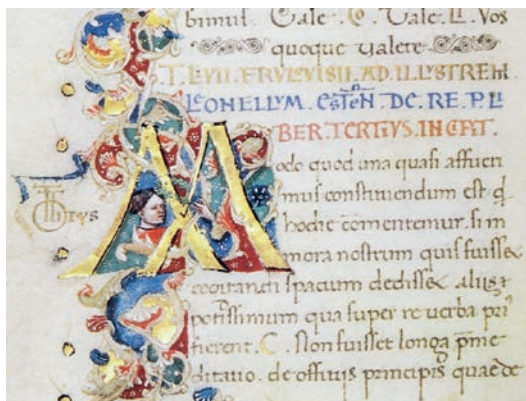 bimul. Vale. Co. Vale. Li. Vos
quoque valere.
T. LIVII. FRVLVISII. AD. ILLVSTREM
LEONELLVM. ESTEN. DC. RE. P. LI
BER. TERTIVS. INCIPIT.
Modo quod una quasi assueri
mus constituendum est q̃
hodie comentemur. si in
mora nostrum quis fuisse
cogitandi spacium dedisset aliis
potissimum qua super re verba pri
fierent. C. Non fuisset longa p̃me
ditatio. de offitijs principis quae de